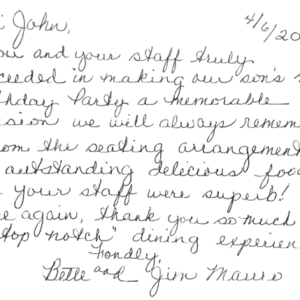 John, 4/6/20
and your staff truly
ceeded in making our son's
thday Party a memorable
sion we will always remem
om the seating arrangement
outstanding delicious foo
your staff were superb!
e again, thank you so much
top notch" dining experien
Fondly,
Bette and Jim